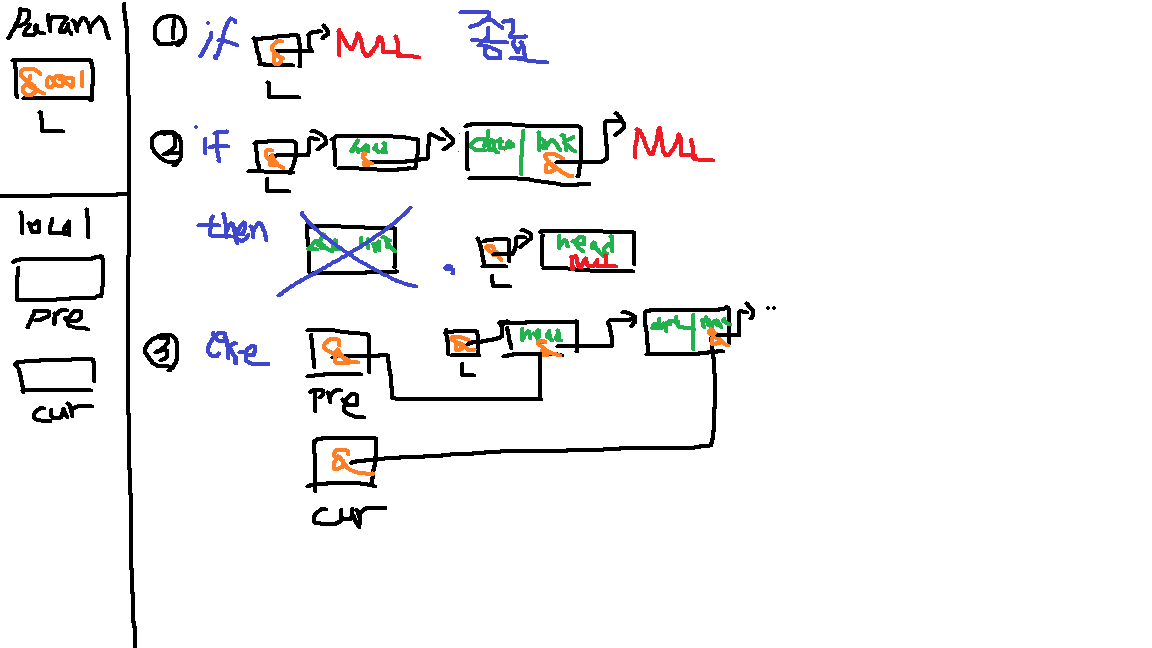 Param
&0001
L
local
pre
cur
① if & NULL 종료
L
② if & head & data link & NULL
L
then data link , & head NULL
L
③ else & & head & data link & ..
pre L
&
cur